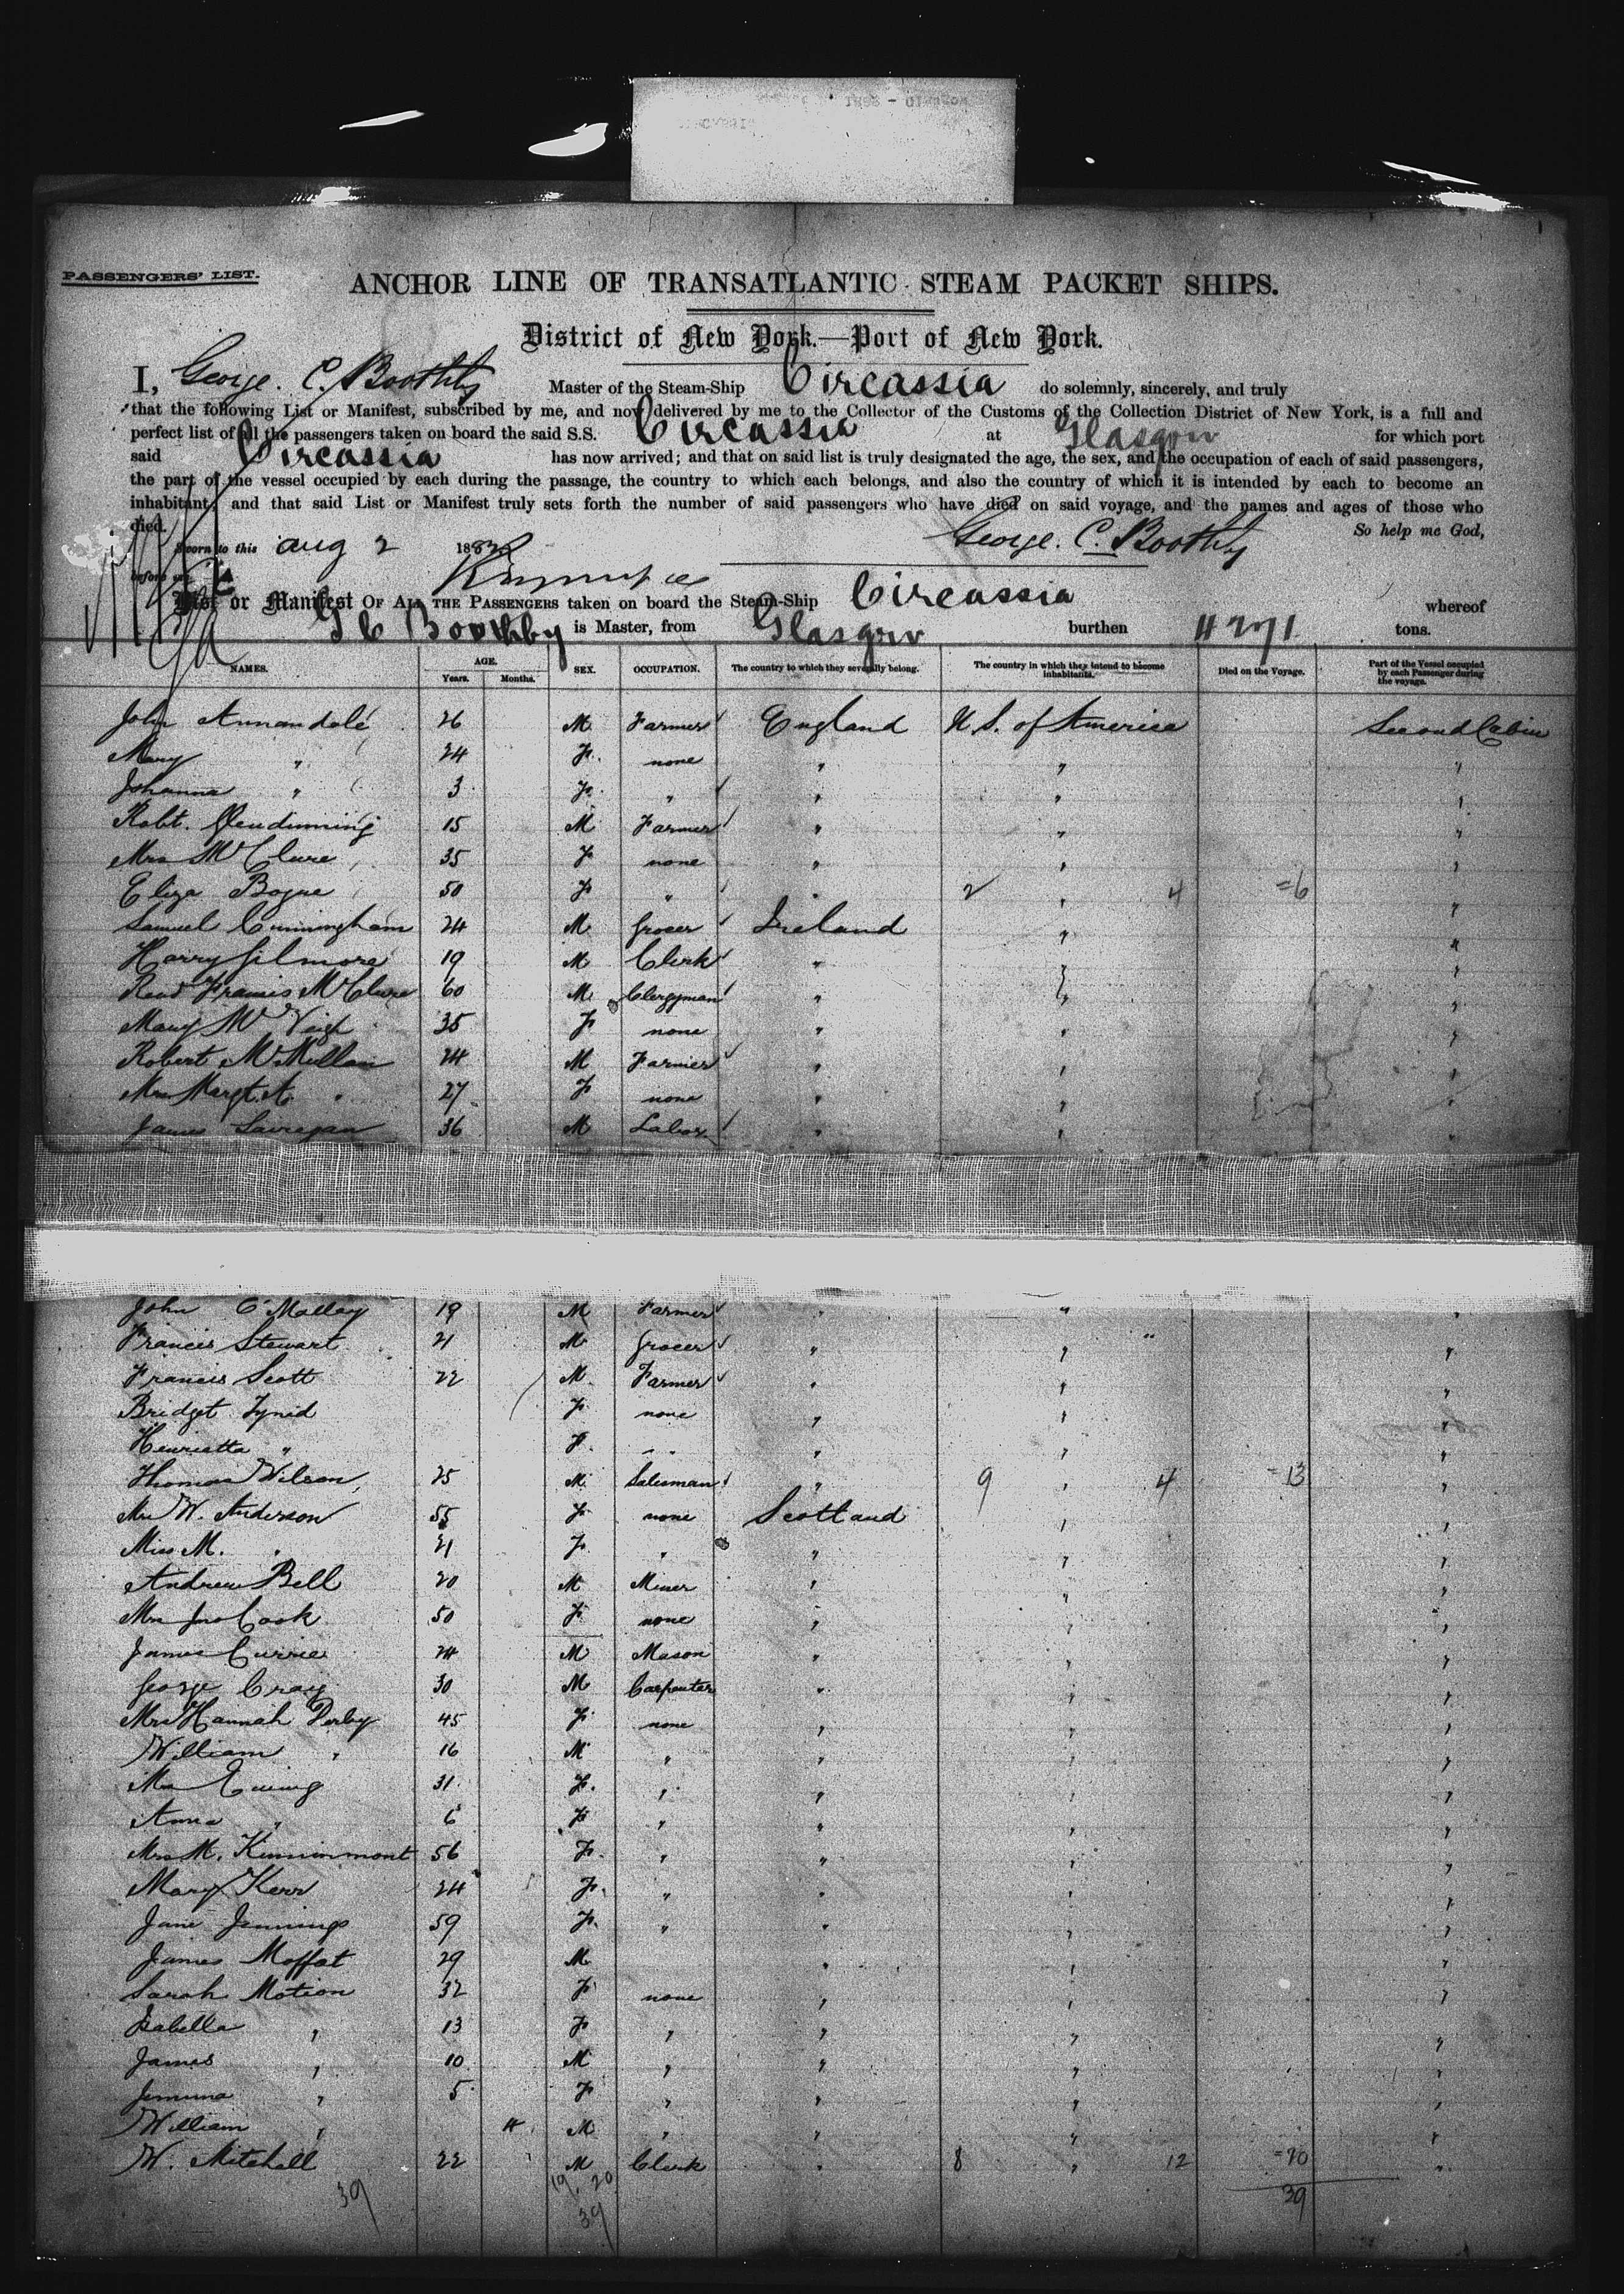 PASSENGERS' LIST.
ANCHOR LINE OF TRANSATLANTIC STEAM PACKET SHIPS.
District of New York.—Port of New York.
I, George. C. Boothby Master of the Steam-Ship Circassia do solemnly, sincerely, and truly
that the following List or Manifest, subscribed by me, and now delivered by me to the Collector of the Customs of the Collection District of New York, is a full and
perfect list of all the passengers taken on board the said S.S. Circassia at Glasgow for which port
said Circassia has now arrived; and that on said list is truly designated the age, the sex, and the occupation of each of said passengers,
the part of the vessel occupied by each during the passage, the country to which each belongs, and also the country of which it is intended by each to become an
inhabitant; and that said List or Manifest truly sets forth the number of said passengers who have died on said voyage, and the names and ages of those who
died. So help me God,
Sworn to this Aug 2 188 George. C. Boothby
before me
List or Manifest OF ALL THE PASSENGERS taken on board the Steam-Ship Circassia whereof
G C Boothby is Master, from Glasgow burthen 4271 tons.
NAMES. AGE. Years. Months. SEX. OCCUPATION. The country to which they severally belong. The country in which they intend to become inhabitants. Died on the Voyage. Part of the Vessel occupied by each Passenger during the voyage.
John Annandale 26 M Farmer England U.S. of America Second Cabin
Mary " 24 F. none " " "
Johanna " 3 F. " " " "
Robt. 15 M Farmer " " "
Mrs McClure 35 F none " " "
Eliza Bogue 50 F " " 2 " 4 =6 "
Samuel Cunningham 24 M Grocer Ireland " "
Harry Gilmore 19 M Clerk " " "
Revd Francis McClure 60 M Clergyman " " "
Mary McVeigh 35 F none " " "
Robert McMillan 24 M Farmer " " "
Mrs Margt. A. " 27 F none " " "
James 36 M Labor " " "
John O'Malley 19 M Farmer " " "
Francis Stewart 21 M Grocer " " "
Francis Scott 22 M Farmer " " "
Bridget F none " " "
Henrietta " F. " " " "
Thomas Wilson 25 M Salesman " 9 " 4 =13 "
Mrs W. Anderson 55 F none Scotland " "
Miss M. " 21 F. " " " "
Andrew Bell 20 M Miner " " "
Mrs Jno Cook 50 F none " " "
James Currie 24 M Mason " " "
George Craig 30 M Carpenter " " "
Mrs Hannah Derby 45 F none " " "
William " 16 M " " " "
Mrs Ewing 31 F. " " " "
Anna " 6 F " " " "
Mrs M. Kinninmont 56 F. " " " "
Mary Kerr 24 F. " " " "
Jane Jennings 59 F. " " " "
James Moffat 29 M " " "
Sarah Motion 32 F none " " "
Isabella " 13 F " " " "
James " 10 M " " " "
Jemima " 5 F " " " "
William " 4 M " " " "
W. Mitchell 22 M Clerk " 8 " 12 =20 "
39 19. 20 39
39